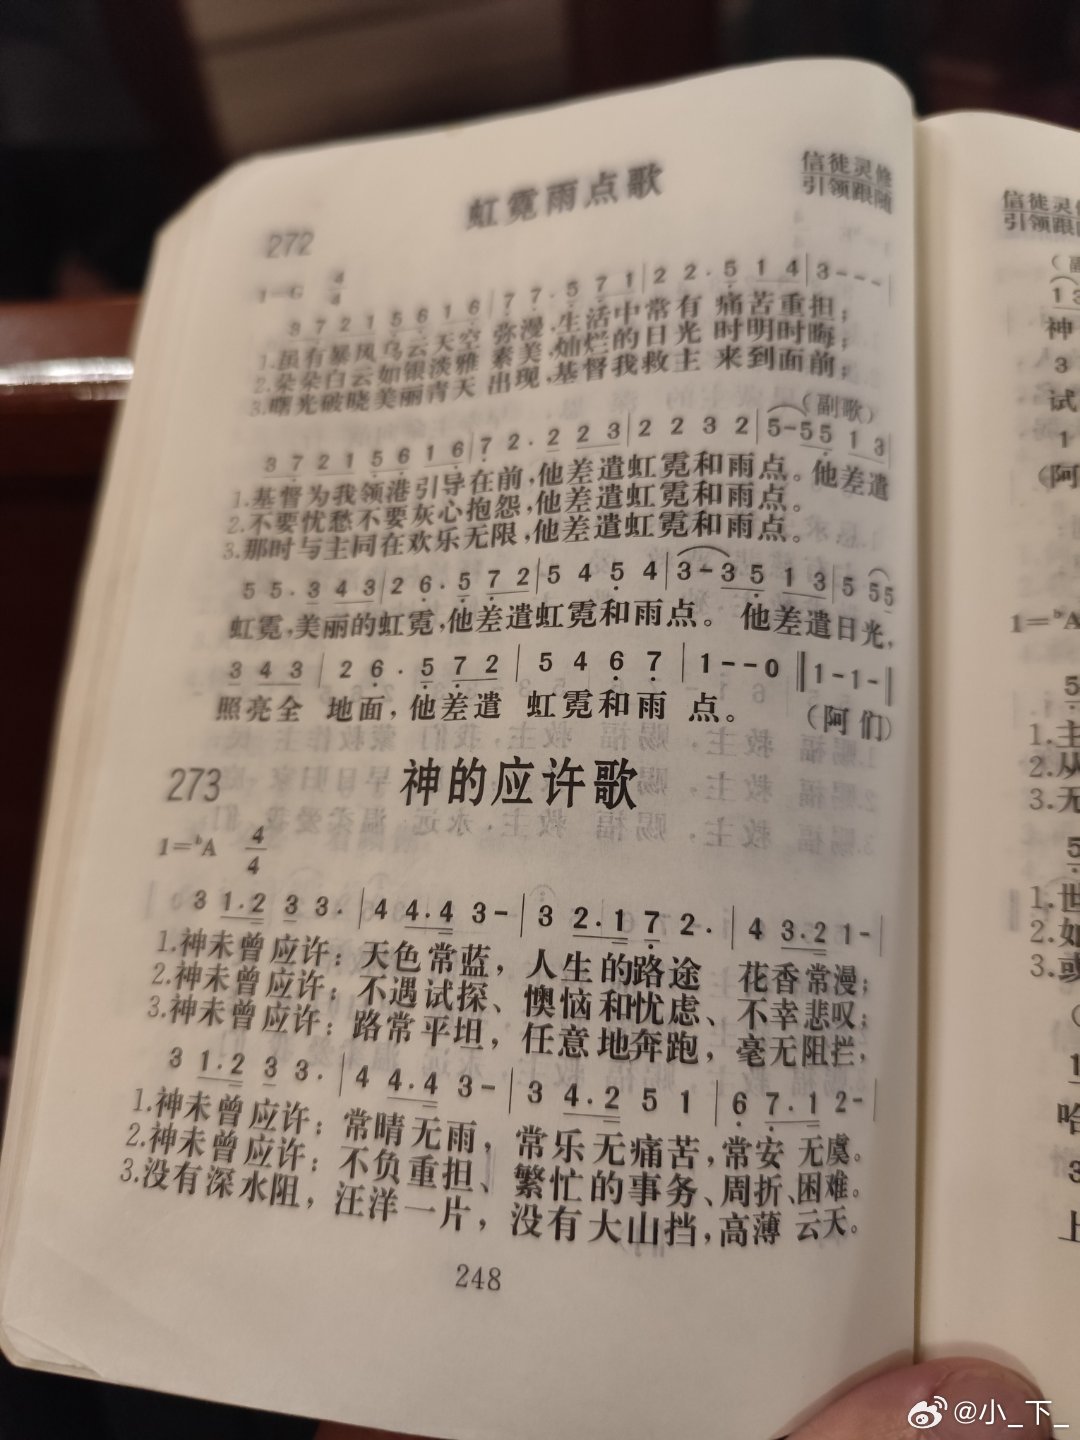 虹霓雨点歌
信徒灵修
引领跟随
272
1=G 4/4
3 7 2 1 5 6 1 6 | 7 7. 5 7 1 | 2 2. 5 1 4 | 3 - - -
1.虽有暴风乌云天空 弥漫,生活中常有 痛苦重担;
2.朵朵白云如银淡雅 素美,灿烂的日光 时明时晦;
3.曙光破晓美丽青天 出现,基督我救主 来到面前;
(副歌)
3 7 2 1 5 6 1 6 | 7 2. 2 2 3 | 2 2 3 2 | 5 - 5 5 1 3
1.基督为我领港引导在前,他差遣虹霓和雨点。他差遣
2.不要忧愁不要灰心抱怨,他差遣虹霓和雨点。
3.那时与主同在欢乐无限,他差遣虹霓和雨点。
5 5. 3 4 3 | 2 6. 5 7 2 | 5 4 5 4 | 3 - 3 5 1 3 | 5 5 5
虹霓,美丽的虹霓,他差遣虹霓和雨点。 他差遣日光,
3 4 3 | 2 6. 5 7 2 | 5 4 6 7 | 1 - - 0 ‖ 1 - 1 - |
照亮全 地面,他差遣 虹霓和雨 点。 (阿们)
273 神的应许歌
1=bA 4/4
3 1.2 3 3. | 4 4.4 3 - | 3 2.1 7 2. | 4 3.2 1 - |
1.神未曾应许;天色常蓝,人生的路途 花香常漫;
2.神未曾应许;不遇试探、懊恼和忧虑、不幸悲叹;
3.神未曾应许;路常平坦,任意地奔跑,毫无阻拦,
3 1.2 3 3. | 4 4.4 3 - | 3 4.2 5 1 | 6 7.1 2 - |
1.神未曾应许;常晴无雨,常乐无痛苦,常安 无虞。
2.神未曾应许;不负重担、繁忙的事务、周折、困难。
3.没有深水阻,汪洋一片,没有大山挡,高薄 云天。
248
信徒灵
引领跟
神
3
试
1
(阿
1=bA
5
1.主
2.从
3.无
5
1.世
2.如
3.或
1
哈
3
上
@小_下_